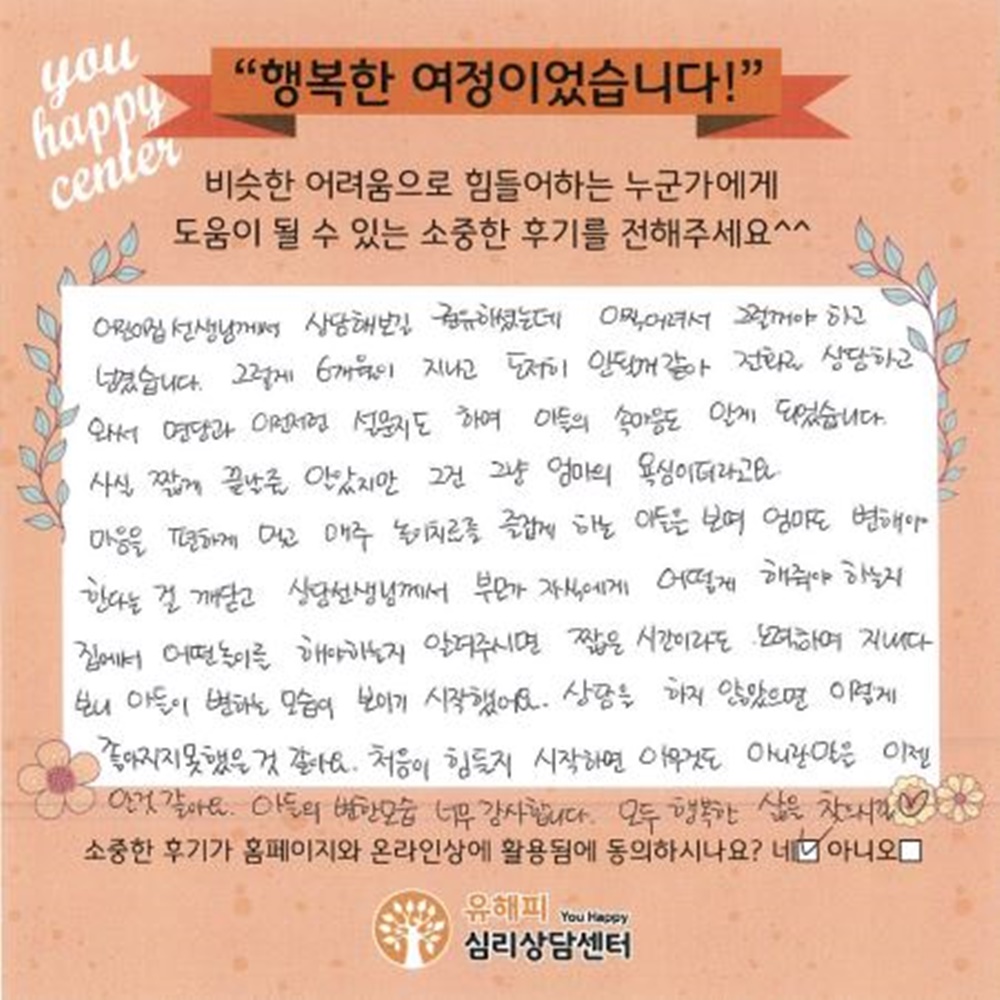 you
happy
center
“행복한 여정이었습니다!”
비슷한 어려움으로 힘들어하는 누군가에게
도움이 될 수 있는 소중한 후기를 전해주세요^^
어린이집 선생님께서 상담해보길 권유하셨는데 아직어려서 그럴꺼야 하고
넘겼습니다. 그렇게 6개월이 지나고 도저히 안될꺼같아 전화로 상담하고
와서 면담과 이런저런 설문지도 하며 아들의 속마음도 알게 되었습니다.
사실 짧게 끝날줄 알았지만 그건 그냥 엄마의 욕심이더라고요.
마음을 편하게 먹고 매주 놀이치료를 즐겁게 하는 아들은 보며 엄마도 변해야
한다는 걸 깨닫고 상담선생님께서 부모가 자식에게 어떻게 해줘야 하는지
집에서 어떤놀이를 해야하는지 알려주시면 짧은 시간이라도 노력하며 지내다
보니 아들이 변하는 모습이 보이기 시작했어요. 상담을 하지 않았으면 이렇게
좋아지지못했을 것 같아요. 처음이 힘들지 시작하면 아무것도 아니란말은 이젠
알것 같아요. 아들의 변한모습 너무 감사합니다. 모두 행복한 삶을 찾으시길
소중한 후기가 홈페이지와 온라인상에 활용됨에 동의하시나요? 네 아니오
유해피 You Happy
심리상담센터